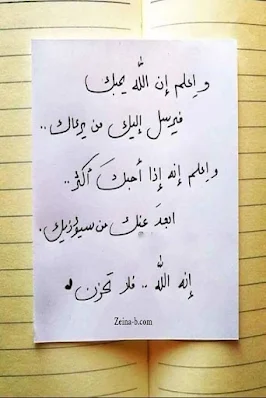 و اعلم إن الله يحبك
فيرسل إليك من يرعاك ..
واعلم إنه إذا أحبكَ أكثر ..
ابعدَ عنك من سيؤذيك.
إنه الله .. فلا تحزن
Zeina-b.com